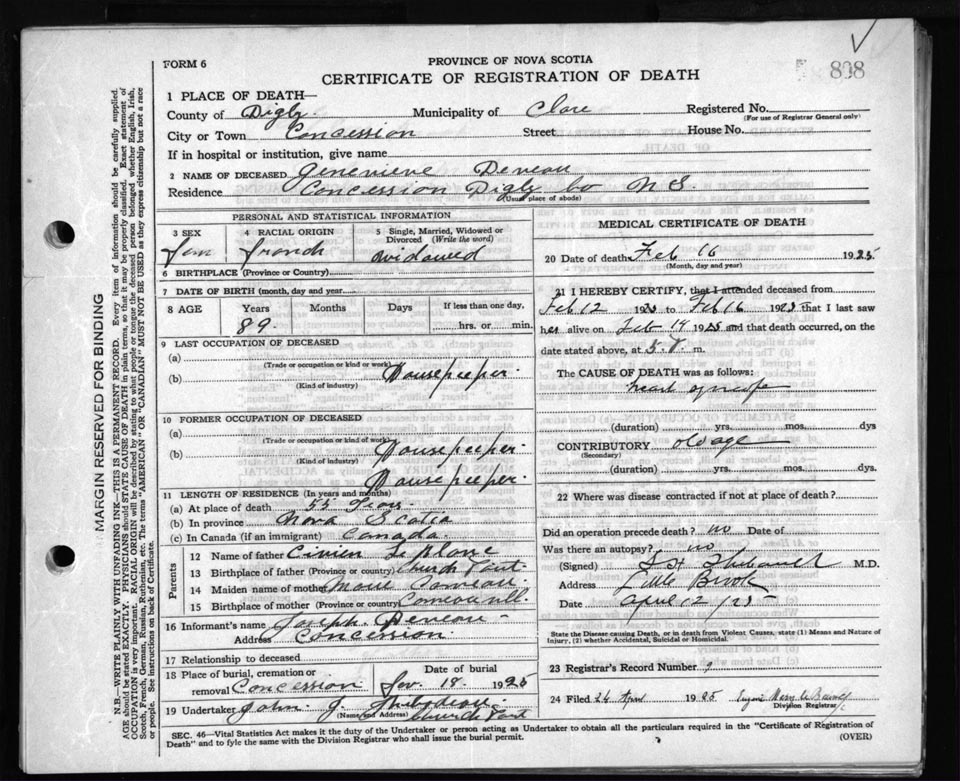 808
FORM 6
PROVINCE OF NOVA SCOTIA
CERTIFICATE OF REGISTRATION OF DEATH
1 PLACE OF DEATH—
County of Digby Municipality of Clare Registered No.
(For use of Registrar General only)
City or Town Concession Street House No.
If in hospital or institution, give name
2 NAME OF DECEASED Genevieve Deveau
Residence Concession Digby Co N S.
(Usual place of abode)
PERSONAL AND STATISTICAL INFORMATION
3 SEX 4 RACIAL ORIGIN 5 Single, Married, Widowed or Divorced (Write the word)
Fem french widowed
6 BIRTHPLACE (Province or Country)
7 DATE OF BIRTH (month, day and year
8 AGE Years Months Days If less than one day,
89. hrs. or min.
9 LAST OCCUPATION OF DECEASED
(a)
(Trade or occupation or kind or work)
(b) Housekeeper.
(Kind of industry)
10 FORMER OCCUPATION OF DECEASED
(a)
(Trade or occupation or kind of work)
(b) Housekeeper.
(Kind of industry)
Housekeeper.
11 LENGTH OF RESIDENCE (In years and months)
(a) At place of death 55 Years
(b) In province Nova Scotia
(c) In Canada (if an immigrant) Canada.
Parents
12 Name of father
13 Birthplace of father (Province or country) Church Point
14 Maiden name of mother Marie Comeau.
15 Birthplace of mother (Province or country)
16 Informant's name Joseph Deveau
Address Concession.
17 Relationship to deceased
18 Place of burial, cremation or removal Concession Date of burial 18. 1925
19 Undertaker John J. Thibodeau
(Name and Address) Church Point
MEDICAL CERTIFICATE OF DEATH
20 Date of death Feb 16 1925
(Month, day and year)
21 I HEREBY CERTIFY, that I attended deceased from
Feb 12 192 to Feb 16 192 that I last saw
her alive on Feb 192 and that death occurred, on
date stated above, at m.
The CAUSE OF DEATH was as follows:
heart syncope
(duration) yrs. mos. dys
CONTRIBUTORY old age
(Secondary)
(duration) yrs. mos. ds.
22 Where was disease contracted if not at place of death?
Did an operation precede death? no Date of
Was there an autopsy? no
(Signed) M.D.
Address Little Brook
Date April 12 / 25
State the Disease causing Death, or in death from Violent Causes, state (1) Means and Nature of Injury, (2) whether Accidental, Suicidal or Homicidal.
23 Registrar's Record Number
24 Filed 24 April 1925
Division Registrar
SEC. 46—Vital Statistics Act makes it the duty of the Undertaker or person acting as Undertaker to obtain all the particulars required in the "Certificate of Registration of
Death" and to fyle the same with the Division Registrar who shall issue the burial permit. (OVER)
MARGIN RESERVED FOR BINDING
N.B.—WRITE PLAINLY WITH UNFADING INK—THIS IS A PERMANENT RECORD. Every item of information should be carefully supplied.
AGE should be stated EXACTLY. PHYSICIANS should STATE CAUSE OF DEATH in plain terms, so that it may be properly classified. Exact statement of
OCCUPATION is very important. RACIAL ORIGIN will be described by stating to what people or tongue the deceased person belonged whether English, Irish,
Scotch, French, German, Russian, Ruthenian, etc. The terms "AMERICAN" OR "CANADIAN" MUST NOT BE USED as they express citizenship but not a race
or people. See instructions on back of Certificate.